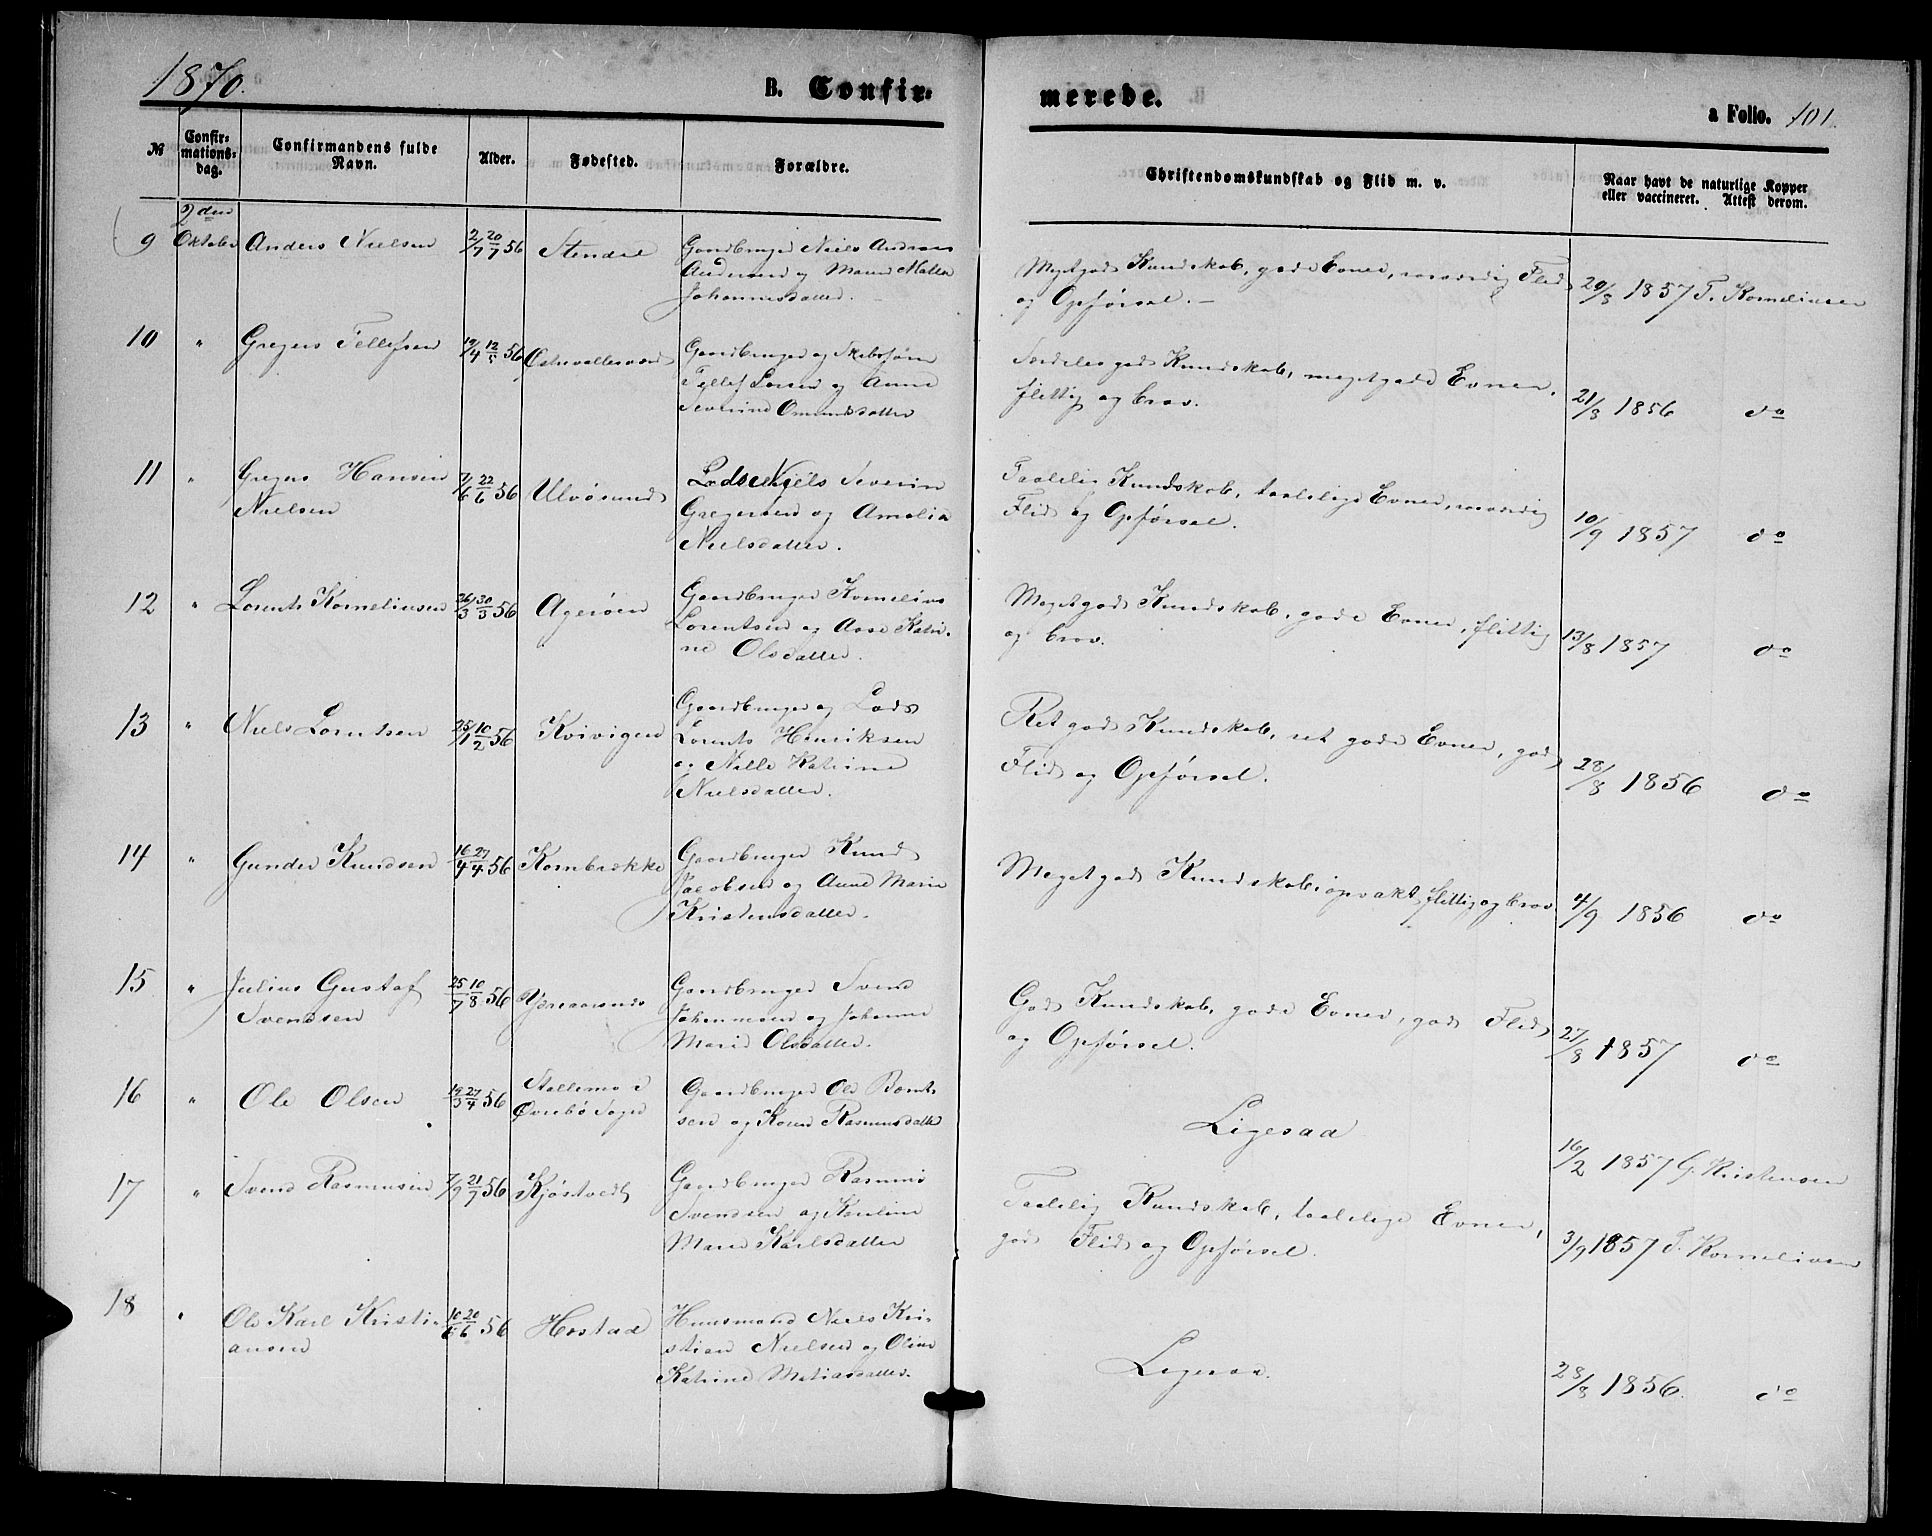 1870.
B. Confir-
merede.
a Folio. 101.
№
Confir-
mations-
dag.
Confirmandens fulde
Navn.
Alder.
Fødested.
Forældre.
Christendomskundskab og Flid m. v.
Naar havt de naturlige Kopper
eller vaccineret. Attest derom.
2den
9 Oktober Anders Nielsen 2/7 20/7 56 Gaardbruger Niels Andreas
Andersen og Malla
Johannesdatter.
Meget god Kundskab, gode Evner, Flid
og Opførsel.
20/8 1857 T. Korneliusen
10 " Gregers Tellefsen 19/4 12/5 56 Gaardbruger og
Tellef Larsen og Anne
Severine Omundsdatter
Særdeles god Kundskab, meget gode Evner,
flittig og brav.
21/8 1856 do
11 " Gregers Hansen
Nielsen 7/6 22/6 56 Ulvøsund Lods Niels Severin
Gregersen og Amalia
Nielsdatter.
Taalelig Kundskab, taalelige Evner,
Flid og Opførsel.
10/9 1857 do
12 " Lorents Korneliusen 26/3 30/3 56 Agerøen Gaardbruger Kornelius
Lorentsen og Aase Katri-
ne Olsdatter.
Meget god Kundskab, gode Evner, flittig
og brav.
13/8 1857 do
13 " Niels Lorentsen 25/1 10/2 56 Kvivigen Gaardbruger og Lods
Lorents Henriksen
og Nille Katrine
Nielsdatter.
Ret god Kundskab, ret gode Evner, god
Flid og Opførsel.
28/8 1856 do
14 " Gunder Knudsen 16/4 27/4 56 Kornbrække Gaardbruger Knud
Jacobsen og Anne Marie
Kristensdatter.
Meget god Kundskab, opvakt, flittig og brav
4/9 1856 do
15 " Julius Gustaf
Svendsen 25/7 10/8 56 Gaardbruger Svend
Johannesen og Johanne
Marie Olsdatter.
God Kundskab, gode Evner, god Flid
og Opførsel.
27/8 1857 do
16 " Ole Olsen 19/3 27/4 56 Stallemo i
Øvrebø Sogn Gaardbruger Ole Bernt-
sen og Karen Rasmusdatter
Ligesaa
16/2 1857 G. Kristensen
17 " Svend Rasmusen 7/9 21/9 56 Kjøstvedt Gaardbruger Rasmus
Svendsen og Karoline
Marie Karlsdatter
Taalelig Kundskab, taalelige Evner,
god Flid og Opførsel.
3/9 1857 T. Korneliusen
18 " Ole Karl Kristi-
ansen 10/6 20/6 56 Hæstad Huusmand Niels Kri-
stian Nielsen og Oline
Katrine Matiasdatter.
Ligesaa.
28/8 1856. do